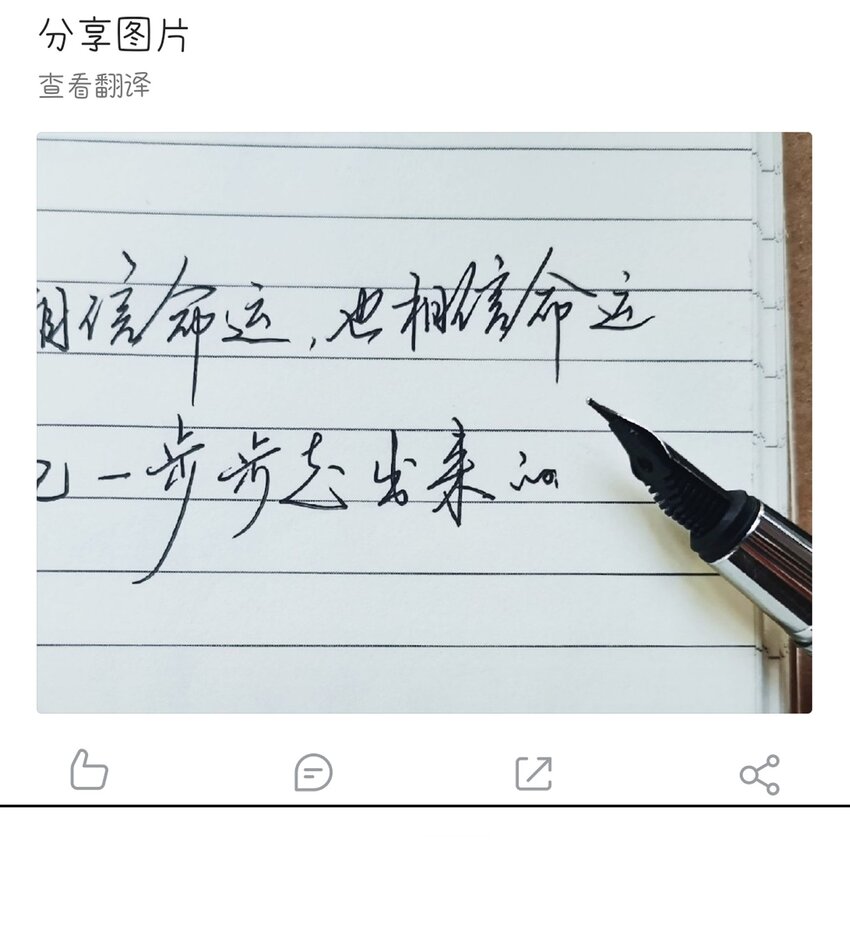 分享图片
查看翻译
相信命运，也相信命运
己一步步走出来的